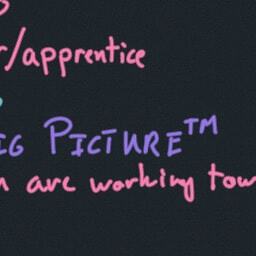 r/apprentice
IG PICTURE™
are working tow